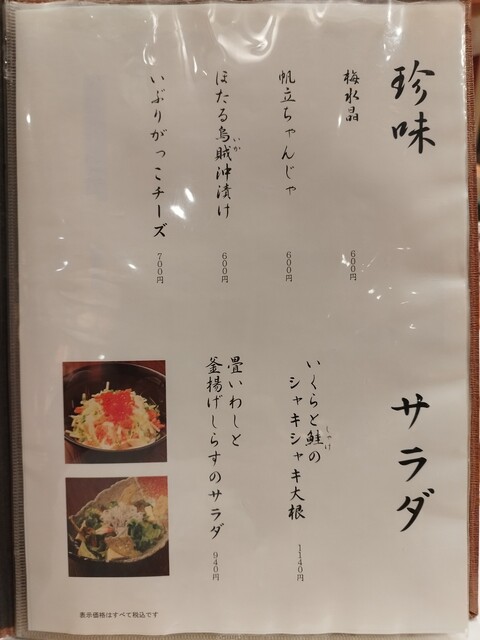 珍味
梅水晶
600円
帆立ちゃんじゃ
600円
ほたる烏賊沖漬け
いか
600円
いぶりがっこチーズ
700円
サラダ
いくらと鮭の
しゃけ
シャキシャキ大根
1140円
畳いわしと
釜揚げしらすのサラダ
940円
表示価格はすべて税込です